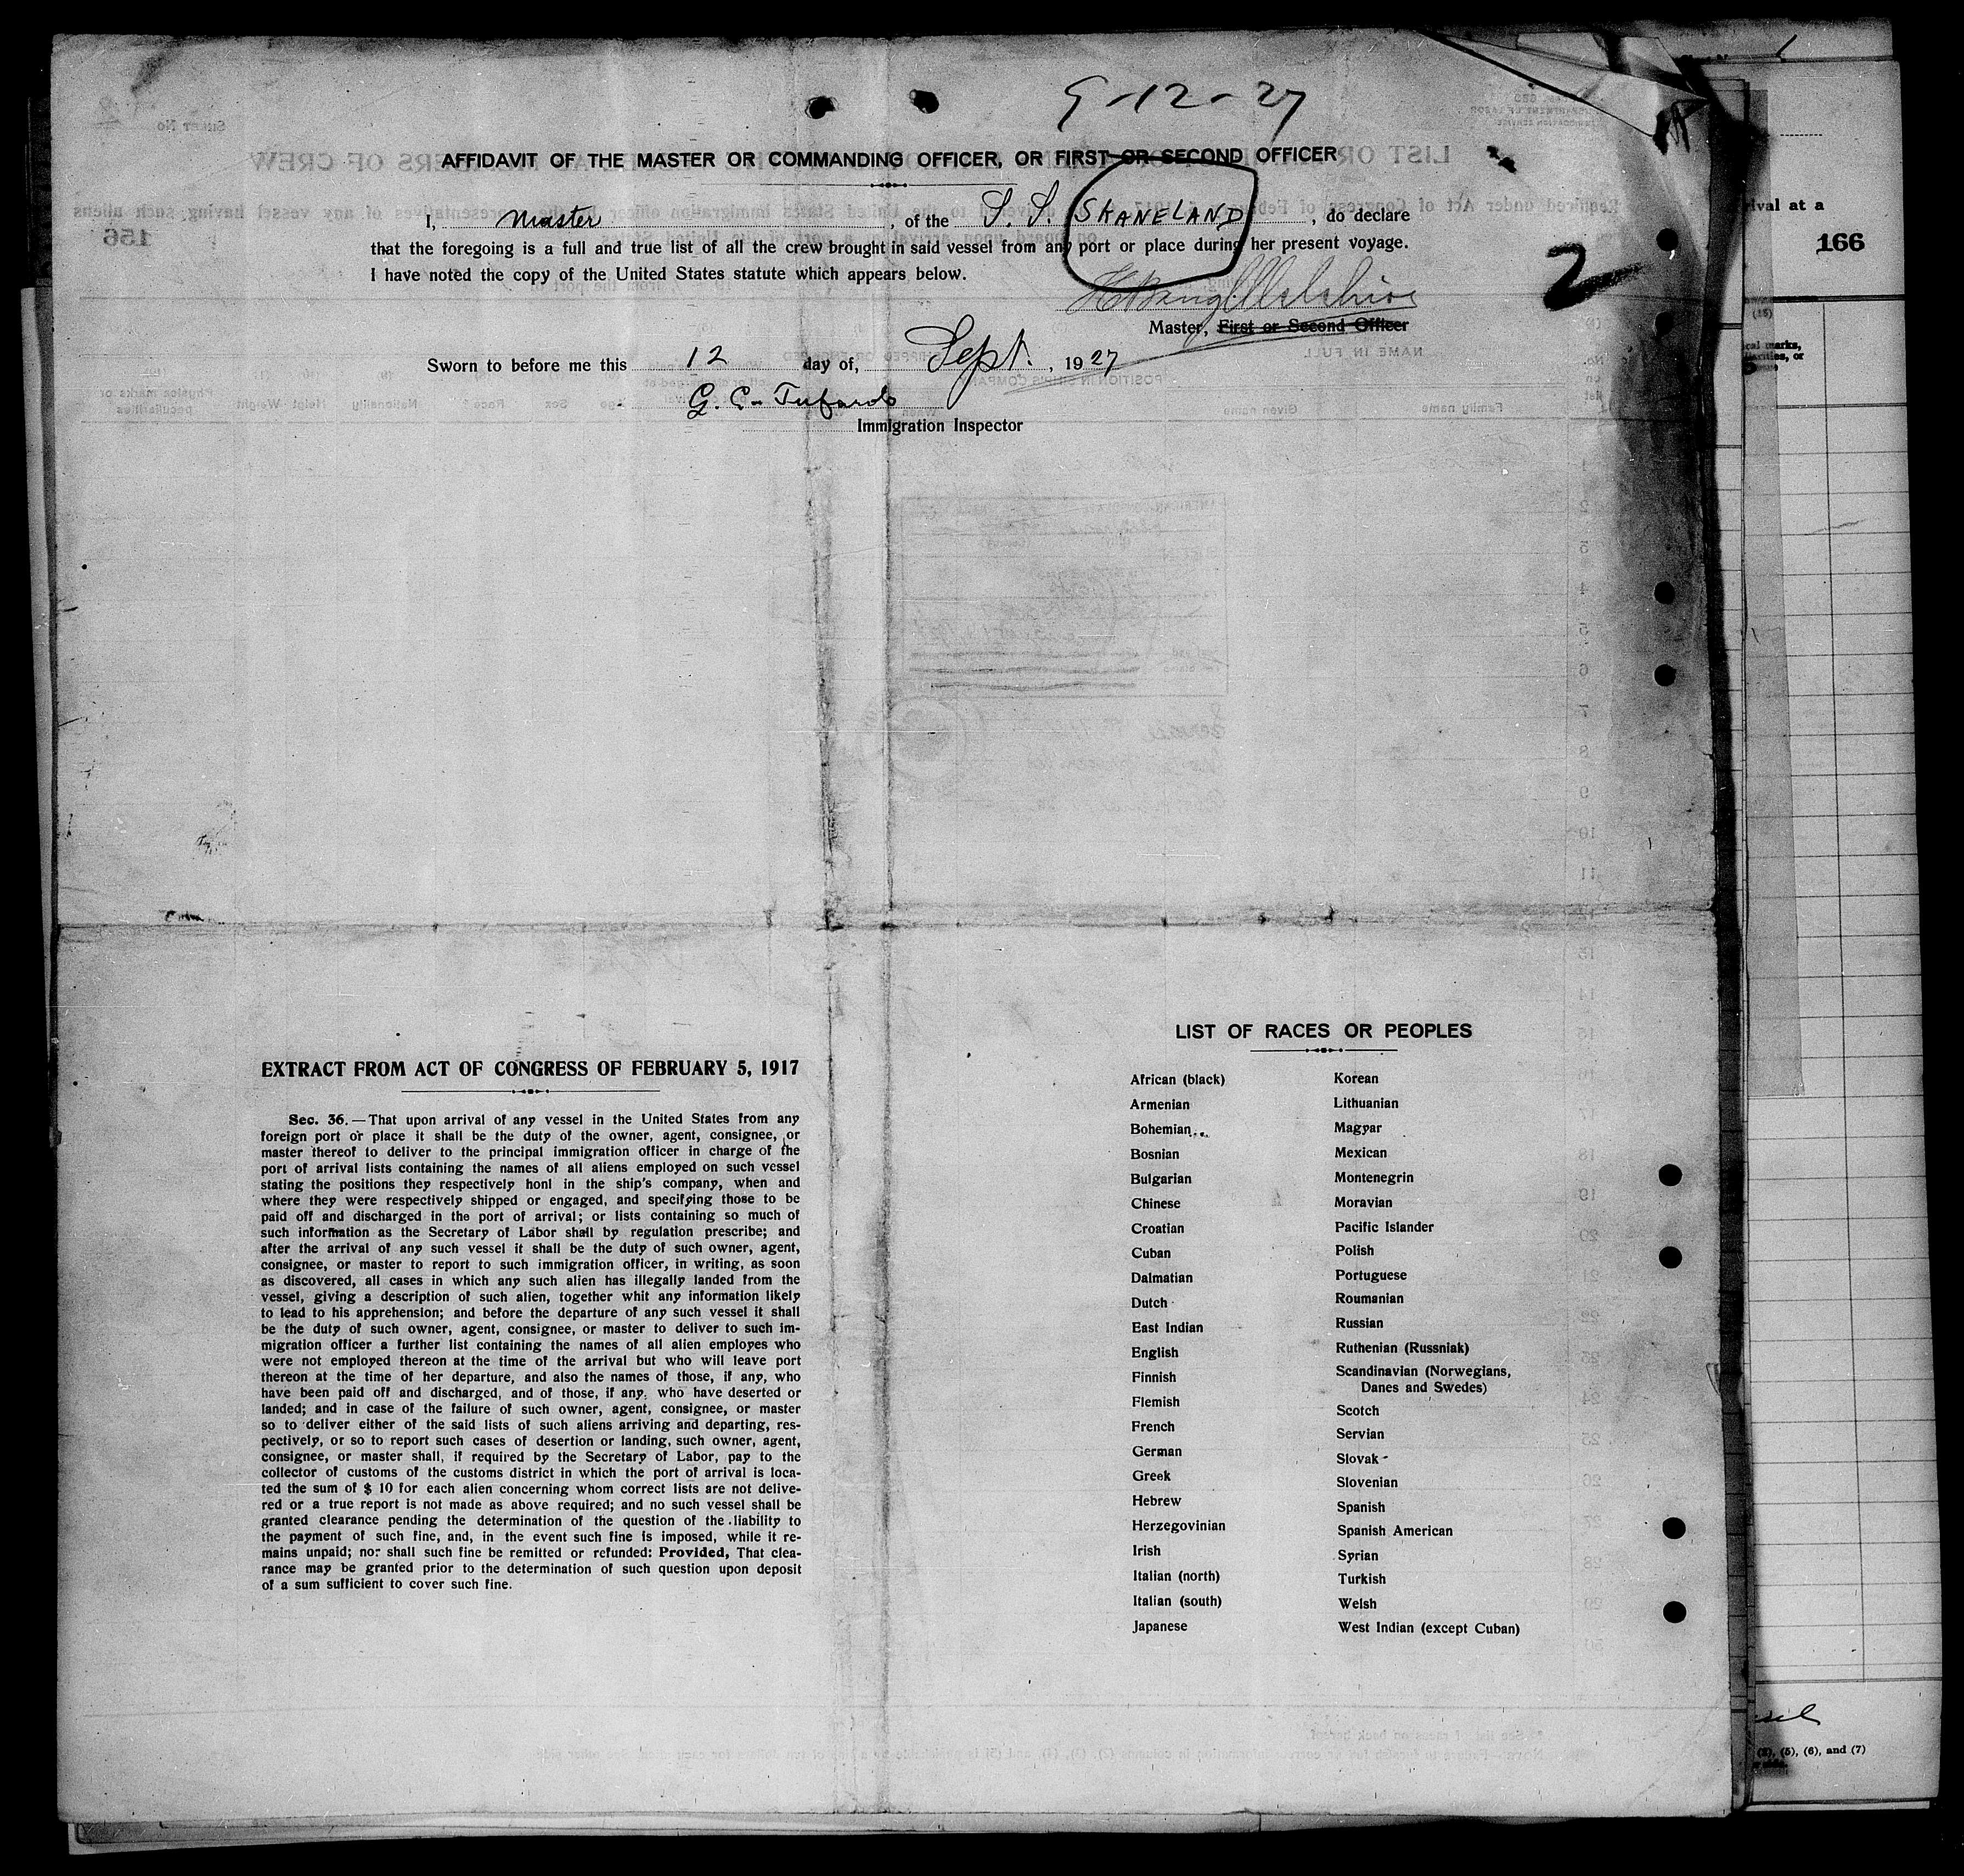 9-12-27
AFFIDAVIT OF THE MASTER OR COMMANDING OFFICER, OR FIRST OR SECOND OFFICER
I, Master, of the S. S. SKANELAND, do declare
that the foregoing is a full and true list of all the crew brought in said vessel from any port or place during her present voyage.
I have noted the copy of the United States statute which appears below.
2
Master, First or Second Officer
Sworn to before me this 12 day of, Sept., 1927
G. C.
Immigration Inspector
rival at a
166
(15)
ical marks,
EXTRACT FROM ACT OF CONGRESS OF FEBRUARY 5, 1917
Sec. 36.—That upon arrival of any vessel in the United States from any
foreign port or place it shall be the duty of the owner, agent, consignee, or
master thereof to deliver to the principal immigration officer in charge of the
port of arrival lists containing the names of all aliens employed on such vessel
stating the positions they respectively honl in the ship's company, when and
where they were respectively shipped or engaged, and specifying those to be
paid off and discharged in the port of arrival; or lists containing so much of
such information as the Secretary of Labor shall by regulation prescribe; and
after the arrival of any such vessel it shall be the duty of such owner, agent,
consignee, or master to report to such immigration officer, in writing, as soon
as discovered, all cases in which any such alien has illegally landed from the
vessel, giving a description of such alien, together whit any information likely
to lead to his apprehension; and before the departure of any such vessel it shall
be the duty of such owner, agent, consignee, or master to deliver to such im-
migration officer a further list containing the names of all alien employes who
were not employed thereon at the time of the arrival but who will leave port
thereon at the time of her departure, and also the names of those, if any, who
have been paid off and discharged, and of those, if any, who have deserted or
landed; and in case of the failure of such owner, agent, consignee, or master
so to deliver either of the said lists of such aliens arriving and departing, res-
pectively, or so to report such cases of desertion or landing, such owner, agent,
consignee, or master shall, if required by the Secretary of Labor, pay to the
collector of customs of the customs district in which the port of arrival is loca-
ted the sum of $ 10 for each alien concerning whom correct lists are not delive-
red or a true report is not made as above required; and no such vessel shall be
granted clearance pending the determination of the question of the liability to
the payment of such fine, and, in the event such fine is imposed, while it re-
mains unpaid; nor shall such fine be remitted or refunded: Provided, That clea-
rance may be granted prior to the determination of such question upon deposit
of a sum sufficient to cover such fine.
LIST OF RACES OR PEOPLES
African (black)
Armenian
Bohemian
Bosnian
Bulgarian
Chinese
Croatian
Cuban
Dalmatian
Dutch
East Indian
English
Finnish
Flemish
French
German
Greek
Hebrew
Herzegovinian
Irish
Italian (north)
Italian (south)
Japanese
Korean
Lithuanian
Magyar
Mexican
Montenegrin
Moravian
Pacific Islander
Polish
Portuguese
Roumanian
Russian
Ruthenian (Russniak)
Scandinavian (Norwegians,
Danes and Swedes)
Scotch
Servian
Slovak
Slovenian
Spanish
Spanish American
Syrian
Turkish
Welsh
West Indian (except Cuban)
(5), (6), and (7)